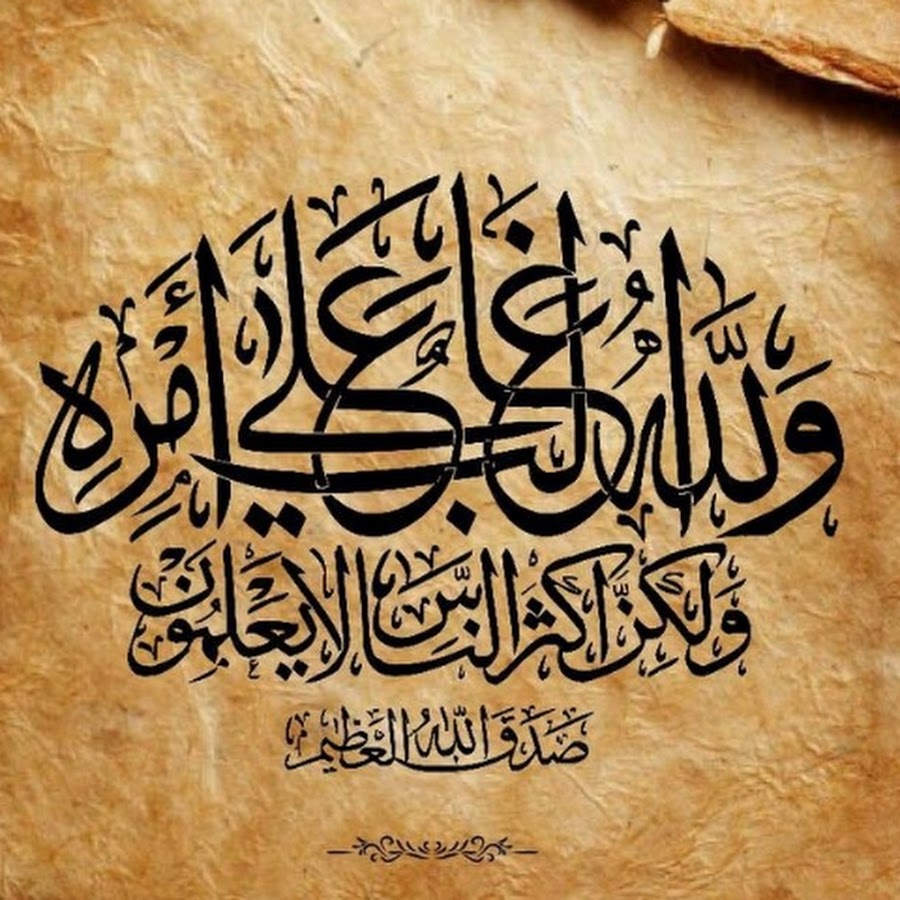 وَاللَّهُ غَالِبٌ عَلَىٰ أَمْرِهِ
وَلَكِنَّ أَكْثَرَ النَّاسِ لَا يَعْلَمُونَ
صَدَقَ اللَّهُ الْعَظِيمُ